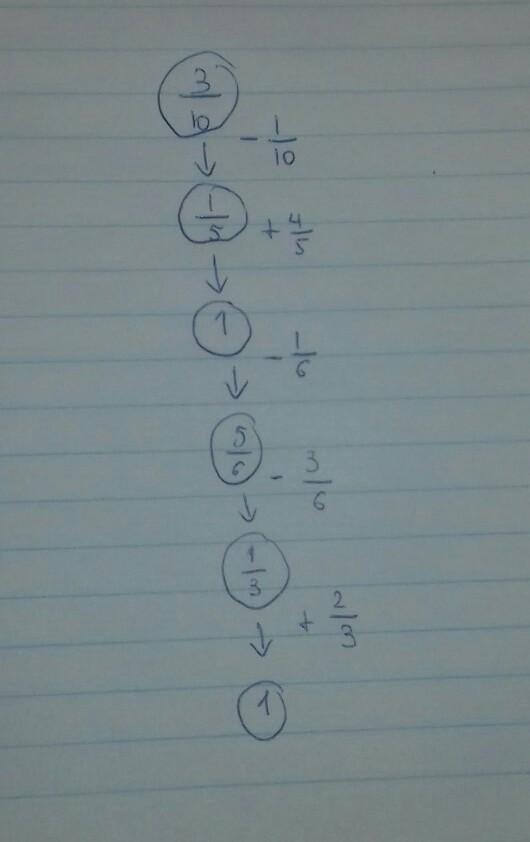 3/10
- 1/10
↓
1/5 + 4/5
↓
1
- 1/6
↓
5/6 - 3/6
↓
1/3
+ 2/3
↓
1